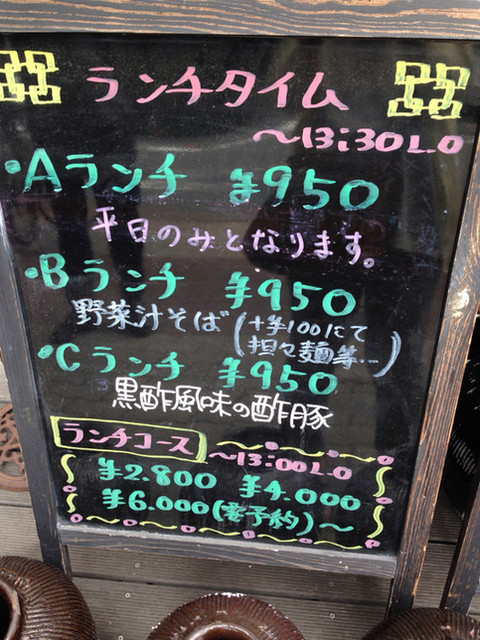 ランチタイム
〜13:30 L.O
・Aランチ ¥950
平日のみとなります。
・Bランチ ¥950
野菜汁そば(+¥100にて
担々麺等…)
・Cランチ ¥950
黒酢風味の酢豚
ランチコース
〜13:00 L.O
¥2.800 ¥4.000
¥6.000(要予約)〜